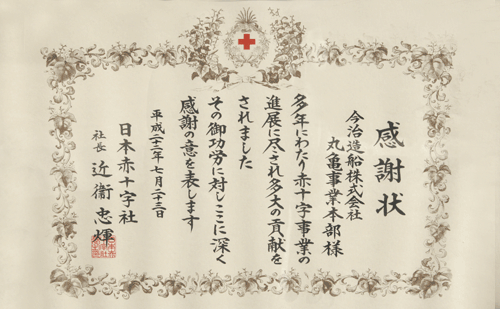 感謝状
今治造船株式会社
丸亀事業本部様
多年にわたり赤十字事業の
進展に尽され多大の貢献を
されました
その御功労に対しここに深く
感謝の意を表します
平成二十二年七月二十三日
日本赤十字社
社長 近衞忠輝